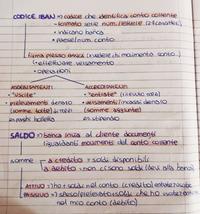 CODICE IBAN => codice che identifica conto corrente
- formato serie num./lettere (27 caratteri)
• indicano banca
• paese/num. conto
firma presso banca (vedere chi movimento conto)
↳ effettuare versamento
• operazioni
ADDEBITAMENTI
ACCREDITAMENTI
• "uscite"
• "entrate"
• prelevamenti denaro
• versamenti/incassi denaro
(somme tolte)
(somme aggiunte)
es. paghi bolletta
es. stipendio
SALDO => banca invia al cliente documenti
riguardanti movimenti del conto corrente
somme
a credito = soldi disponibili
a debito = non ci sono soldi (devi alla banca)
ATTIVO => ho + soldi nel conto (credito)
PASSIVO => soldi che ho nel
mio conto (debito)